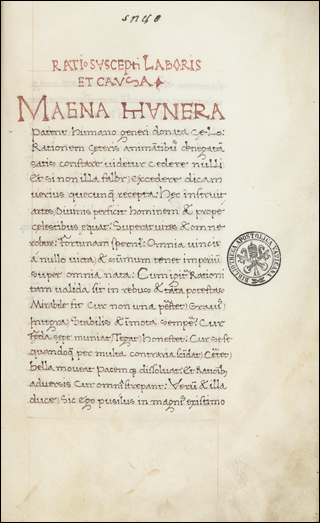 5240
RATIO SVSCEPTI LABORIS
ET CAVSA
MAGNA MVNERA
Patent humano generi donata Celo:
Rationem Ceteris animātibus denegatā
satis constare videtur cedere nulli
Et si non illa fallor excedere dicam
verius quecunq recepta: Hec instruit
artes: Divinis perficit hominem & prope
celestibus equat: Superat vires & omne
robur: fortunam spernit: Omnia vincit
a nullo victa: & coūmun tenet imperiū
super omnia nata: Cum igit Rationi
tam valida sit in rebus & tāta potestas
Mirabile sit Cur non una pstet: Gravis
Integra: Stabilis & imota semp: Cur
seps muniat Tegat honestet: Cur se se
quandoq per multa contraria scidat
bella moveat Pacem q dissolvat: Et
adversis Cur omnis strepant: Verū & illa
duce Sic ego pusilus in magnis existimo
BIBLIOTHECA APOSTOLICA VATICANA